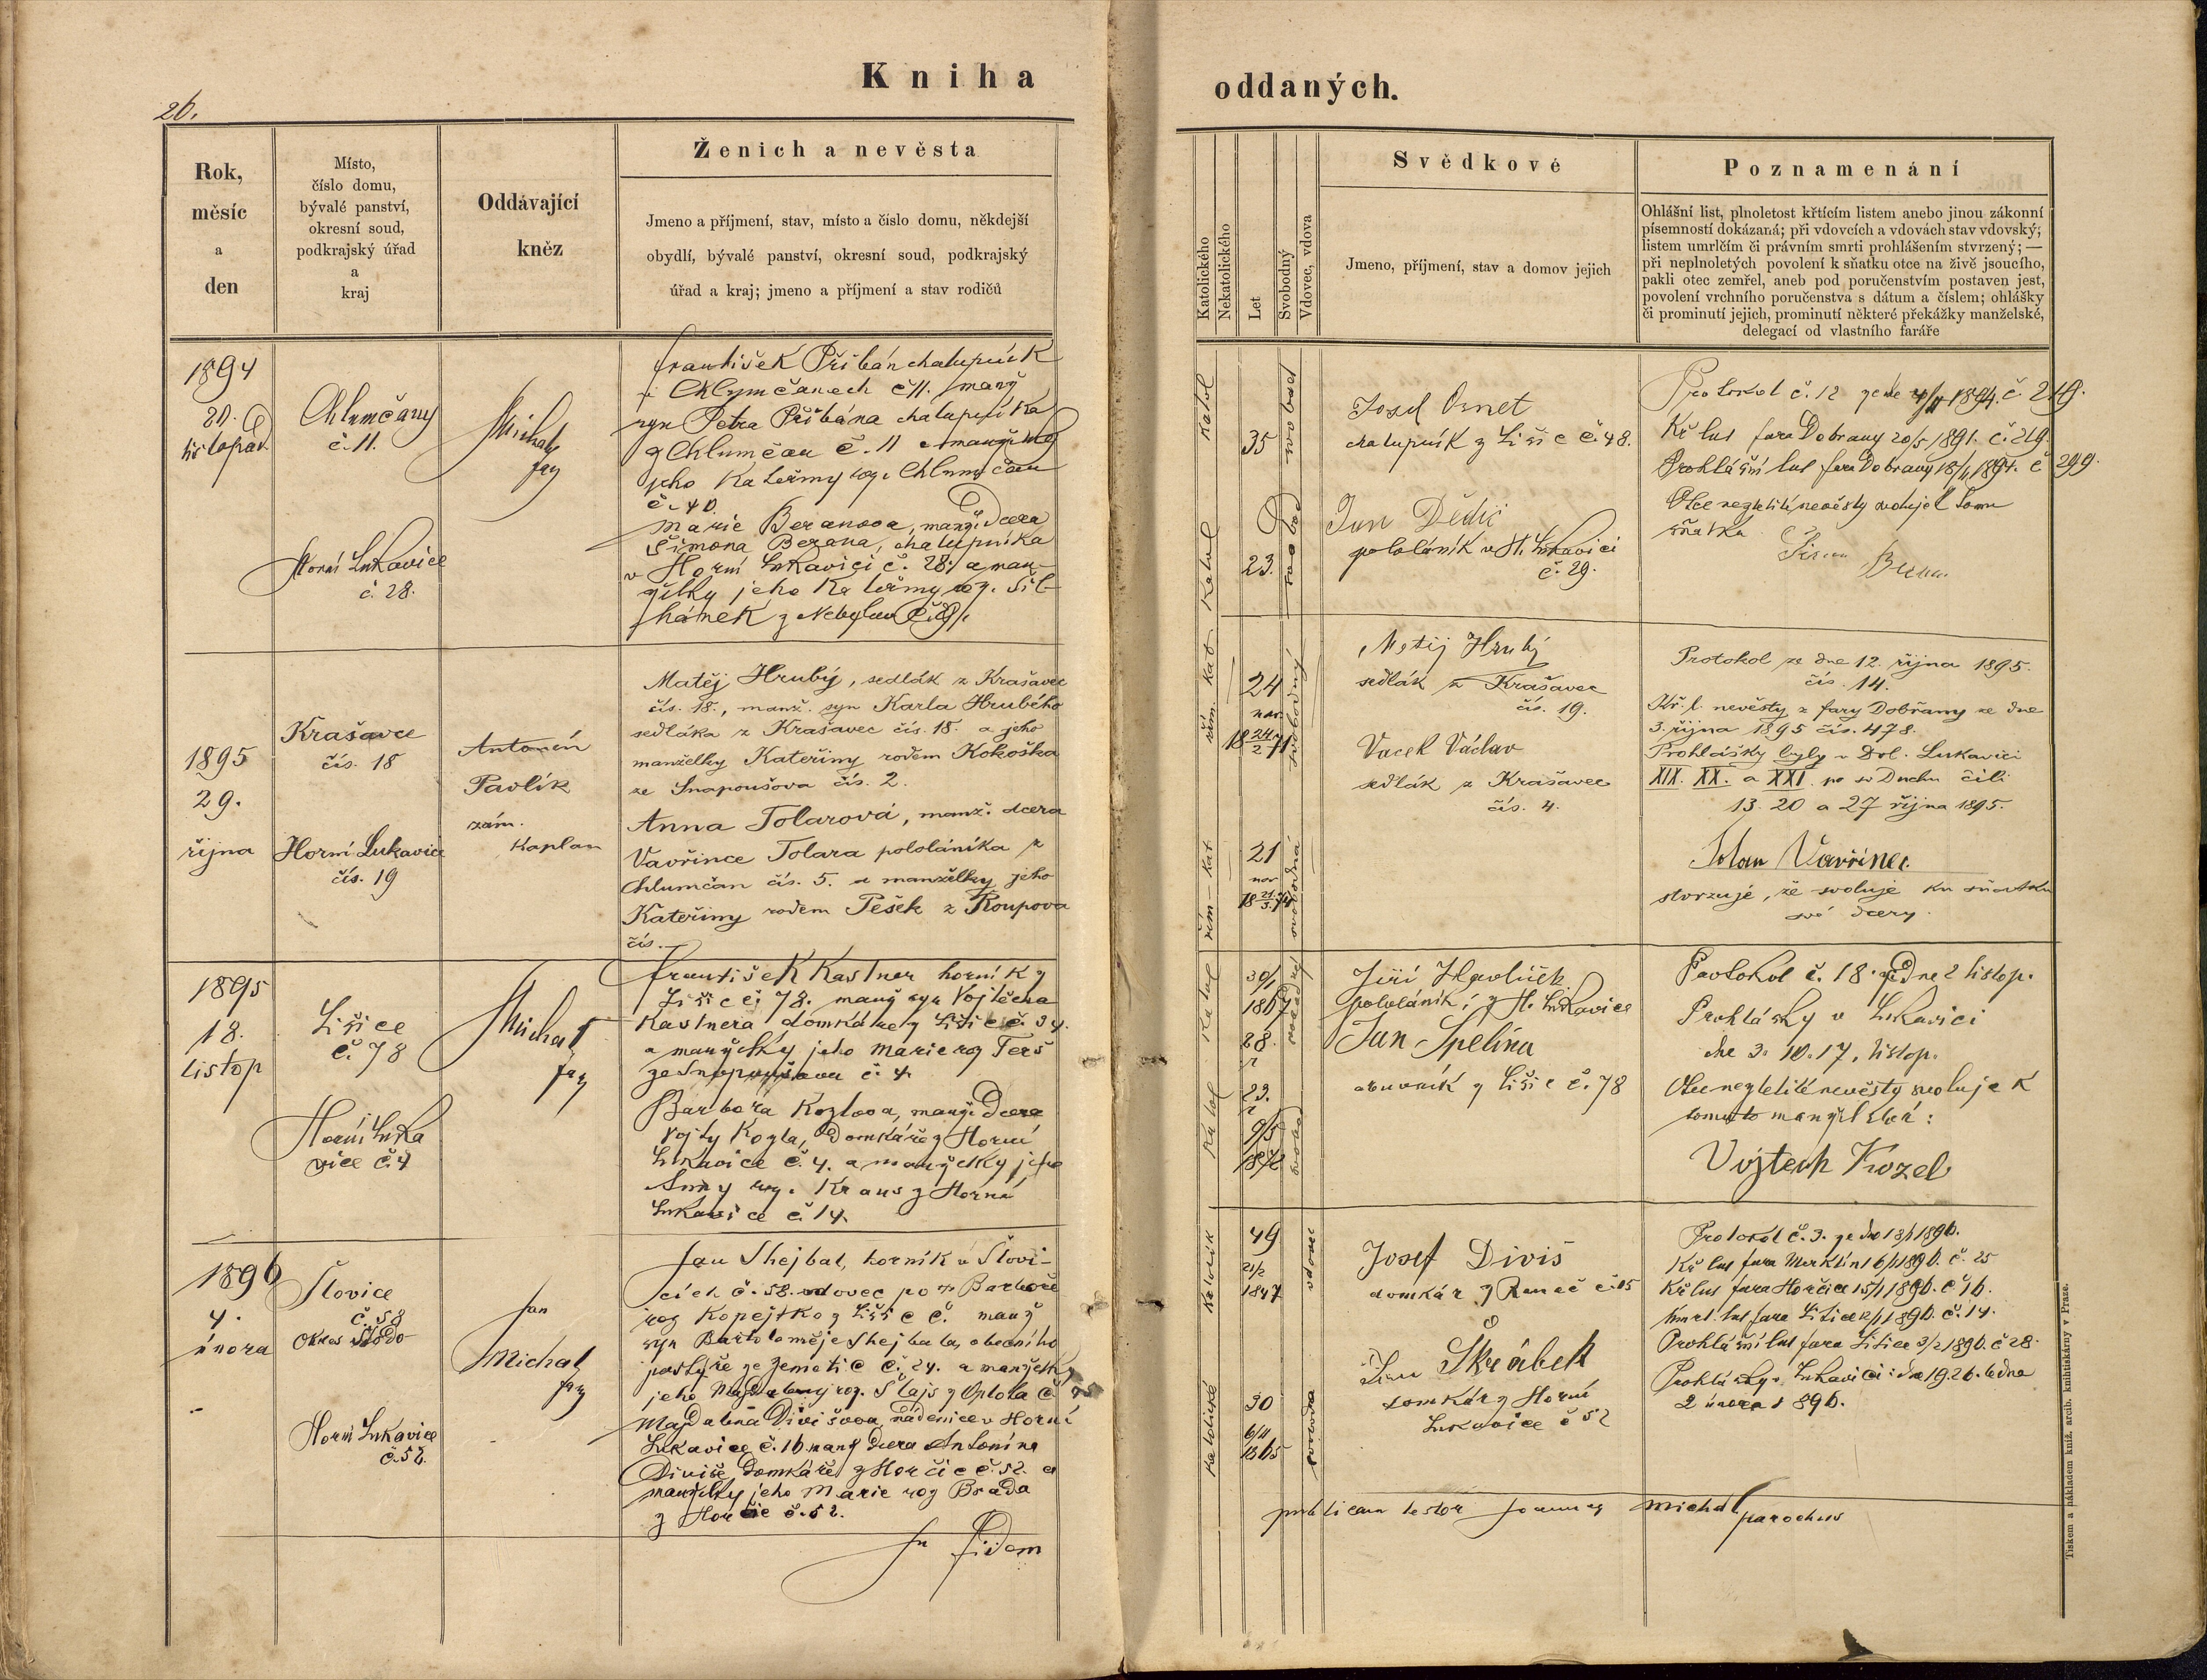 Kniha
oddaných.
26.
Rok,
měsíc
a
den
Místo,
číslo domu,
bývalé panství,
okresní soud,
podkrajský úřad
a
kraj
Oddávající
kněz
Ženich a nevěsta
Jmeno a příjmení, stav, místo a číslo domu, někdejší
obydlí, bývalé panství, okresní soud, podkrajský
úřad a kraj; jmeno a příjmení a stav rodičů
Katolického
Nekatolického
Let
Svobodný
Vdovec, vdova
Svědkové
Jmeno, příjmení, stav a domov jejich
Poznamenání
Ohlášní list, plnoletost křtícím listem anebo jinou zákonní
písemností dokázaná; při vdovcích a vdovách stav vdovský;
listem umrlčím či právním smrti prohlášením stvrzený; —
při neplnoletých povolení k sňatku otce na živě jsoucího,
pakli otec zemřel, aneb pod poručenstvím postaven jest,
povolení vrchního poručenstva s dátum a číslem; ohlášky
či prominutí jejich, prominutí některé překážky manželské,
delegací od vlastního faráře
1894
20.
listopad
Chlumčany
č. 11.
Horní Lukavice
č. 28.
Michal
far
František Přibán chalupník
v Chlumčanech č 11. manž
syn Petra Přibána chalupníka
z Chlumčan č. 11 a manželky
jeho Kateřiny roz. Chlumčan
č. 40
Marie Beranova, manž. dcera
Šimona Berana, chalupníka
v Horní Lukavici č. 28. a man-
želky jeho Kateřiny roz. Sil-
hánek z Nebylov č.
Katol
35
svobod
Katol
23.
svobod
Josef Osnet
chalupník z Lišic č. 48.
Jan Dědic
pololáník v H. Lukavici
č. 29.
Protokol č. 12 ze dne 4/11 1894. č. 219.
Kř list fara Dobřany 20/5 1891. č. 219.
Prohlášní list fara Dobřany 18/11 1894. č 299.
Otec nezletilé nevěsty svoluje k tomu
sňatku
Šimon Beran
1895
29.
října
Krašavce
čís. 18
Horní Lukavice
čís. 19
Antonín
Pavlík
zám.
kaplan
Matěj Hrubý, sedlák z Krašavec
čís. 18., manž. syn Karla Hrubého
sedláka z Krašavec čís. 18. a jeho
manželky Kateřiny rodem Kokoška
ze Snapoušova čís. 2.
Anna Tolarová, manž. dcera
Vavřince Tolara pololáníka z
Chlumčan čís. 5. a manželky jeho
Kateřiny rodem Pešek z Roupova
čís. —
řím. kat
24
nar.
24
18 2 71
svobodný
řím — kat
21
nar
21
18 3. 74
svobodná
Matěj Hrubý
sedlák z Krašavec
čís. 19.
Vacek Václav
sedlák z Krašavec
čís. 4.
Protokol ze dne 12. října 1895.
čís. 14.
Kř. l. nevěsty z fary Dobřany ze dne
3. října 1895 čís. 478.
Prohlášky byly v Dol. Lukavici
XIX. XX. a XXI. po sv Duchu čili
13. 20 a 27 října 1895.
Tolar Vavřinec
stvrzuje, že svoluje ku sňatku
své dcery.
1895
18.
listop
Lišice
č. 78
Horní Luka
vice č. 4
Michal
far
František Kastner horník z
Lišic čj 78. manž syn Vojtěcha
Kastnera domkáře z Lišic č. 34.
a manželky jeho Marie roz Terš
ze Snopoušova č. 4.
Barbora Kozlova, manž. dcera
Vojty Kozla, domkáře z Horní
Lukavice č. 4. a manželky jeho
Anny roz. Kraus z Horní
Lukavice č. 14.
Katol
30/1
1867
28.
r
Katol
23.
r
9/5
1872
svobod
Jiří Havlíček
pololáník z H. Lukavice
Jan Spelina
z Lišic č. 78
Protokol č. 18. ze dne 2 listop.
Prohlášky v Lukavici
dne 3. 10. 17. listop.
Otec nezletilé nevěsty svoluje k
tomuto manželství:
Vojtech Kozel
1896
4.
února
Šlovice
č. 58
okres Stodo-
Horní Lukavice
č. 52.
Jan
Michal
far
Jan Shejbal, horník v Šlovi-
cích č. 58. vdovec po † Barboře
roz Kopejtko z Lišic č. manž
syn Bartoloměje Shejbala, obecního
pastýře ze Zemětic č. 24. a manželky
jeho Magdaleny roz. Stajs z Oplota č.
Magdalena Divišova, nádenice v Horní
Lukavice č. 16 manž dcera Antonína
Diviše, domkáře z Horčic č. 52. a
manželky jeho Marie roz Brada
z Horčic č. 52.
Katolík
49
21/2
1847
vdovec
Katolické
30
6/11
1865
svobodna
Josef Diviš
domkář z Renč č. 15
Šim Škrábek
domkář z Horní
Lukavice č 52
Protokol č. 3. ze dne 13/1 1896.
Kř list fara Merklín 16/1 1896. č. 25
Kř list fara Horčice 15/1 1896. č 16.
Úmrt. list fara Litice 1896. č. 14.
Prohlášní list fara Litice 3/2 1896. č 28.
Prohlášky v Lukavici: dne 19. 26. ledna
2 února 1896.
In fidem
publicam testor Joannes Michal parochus
Tiskem a nákladem kníž. arcib. knihtiskárny v Praze.